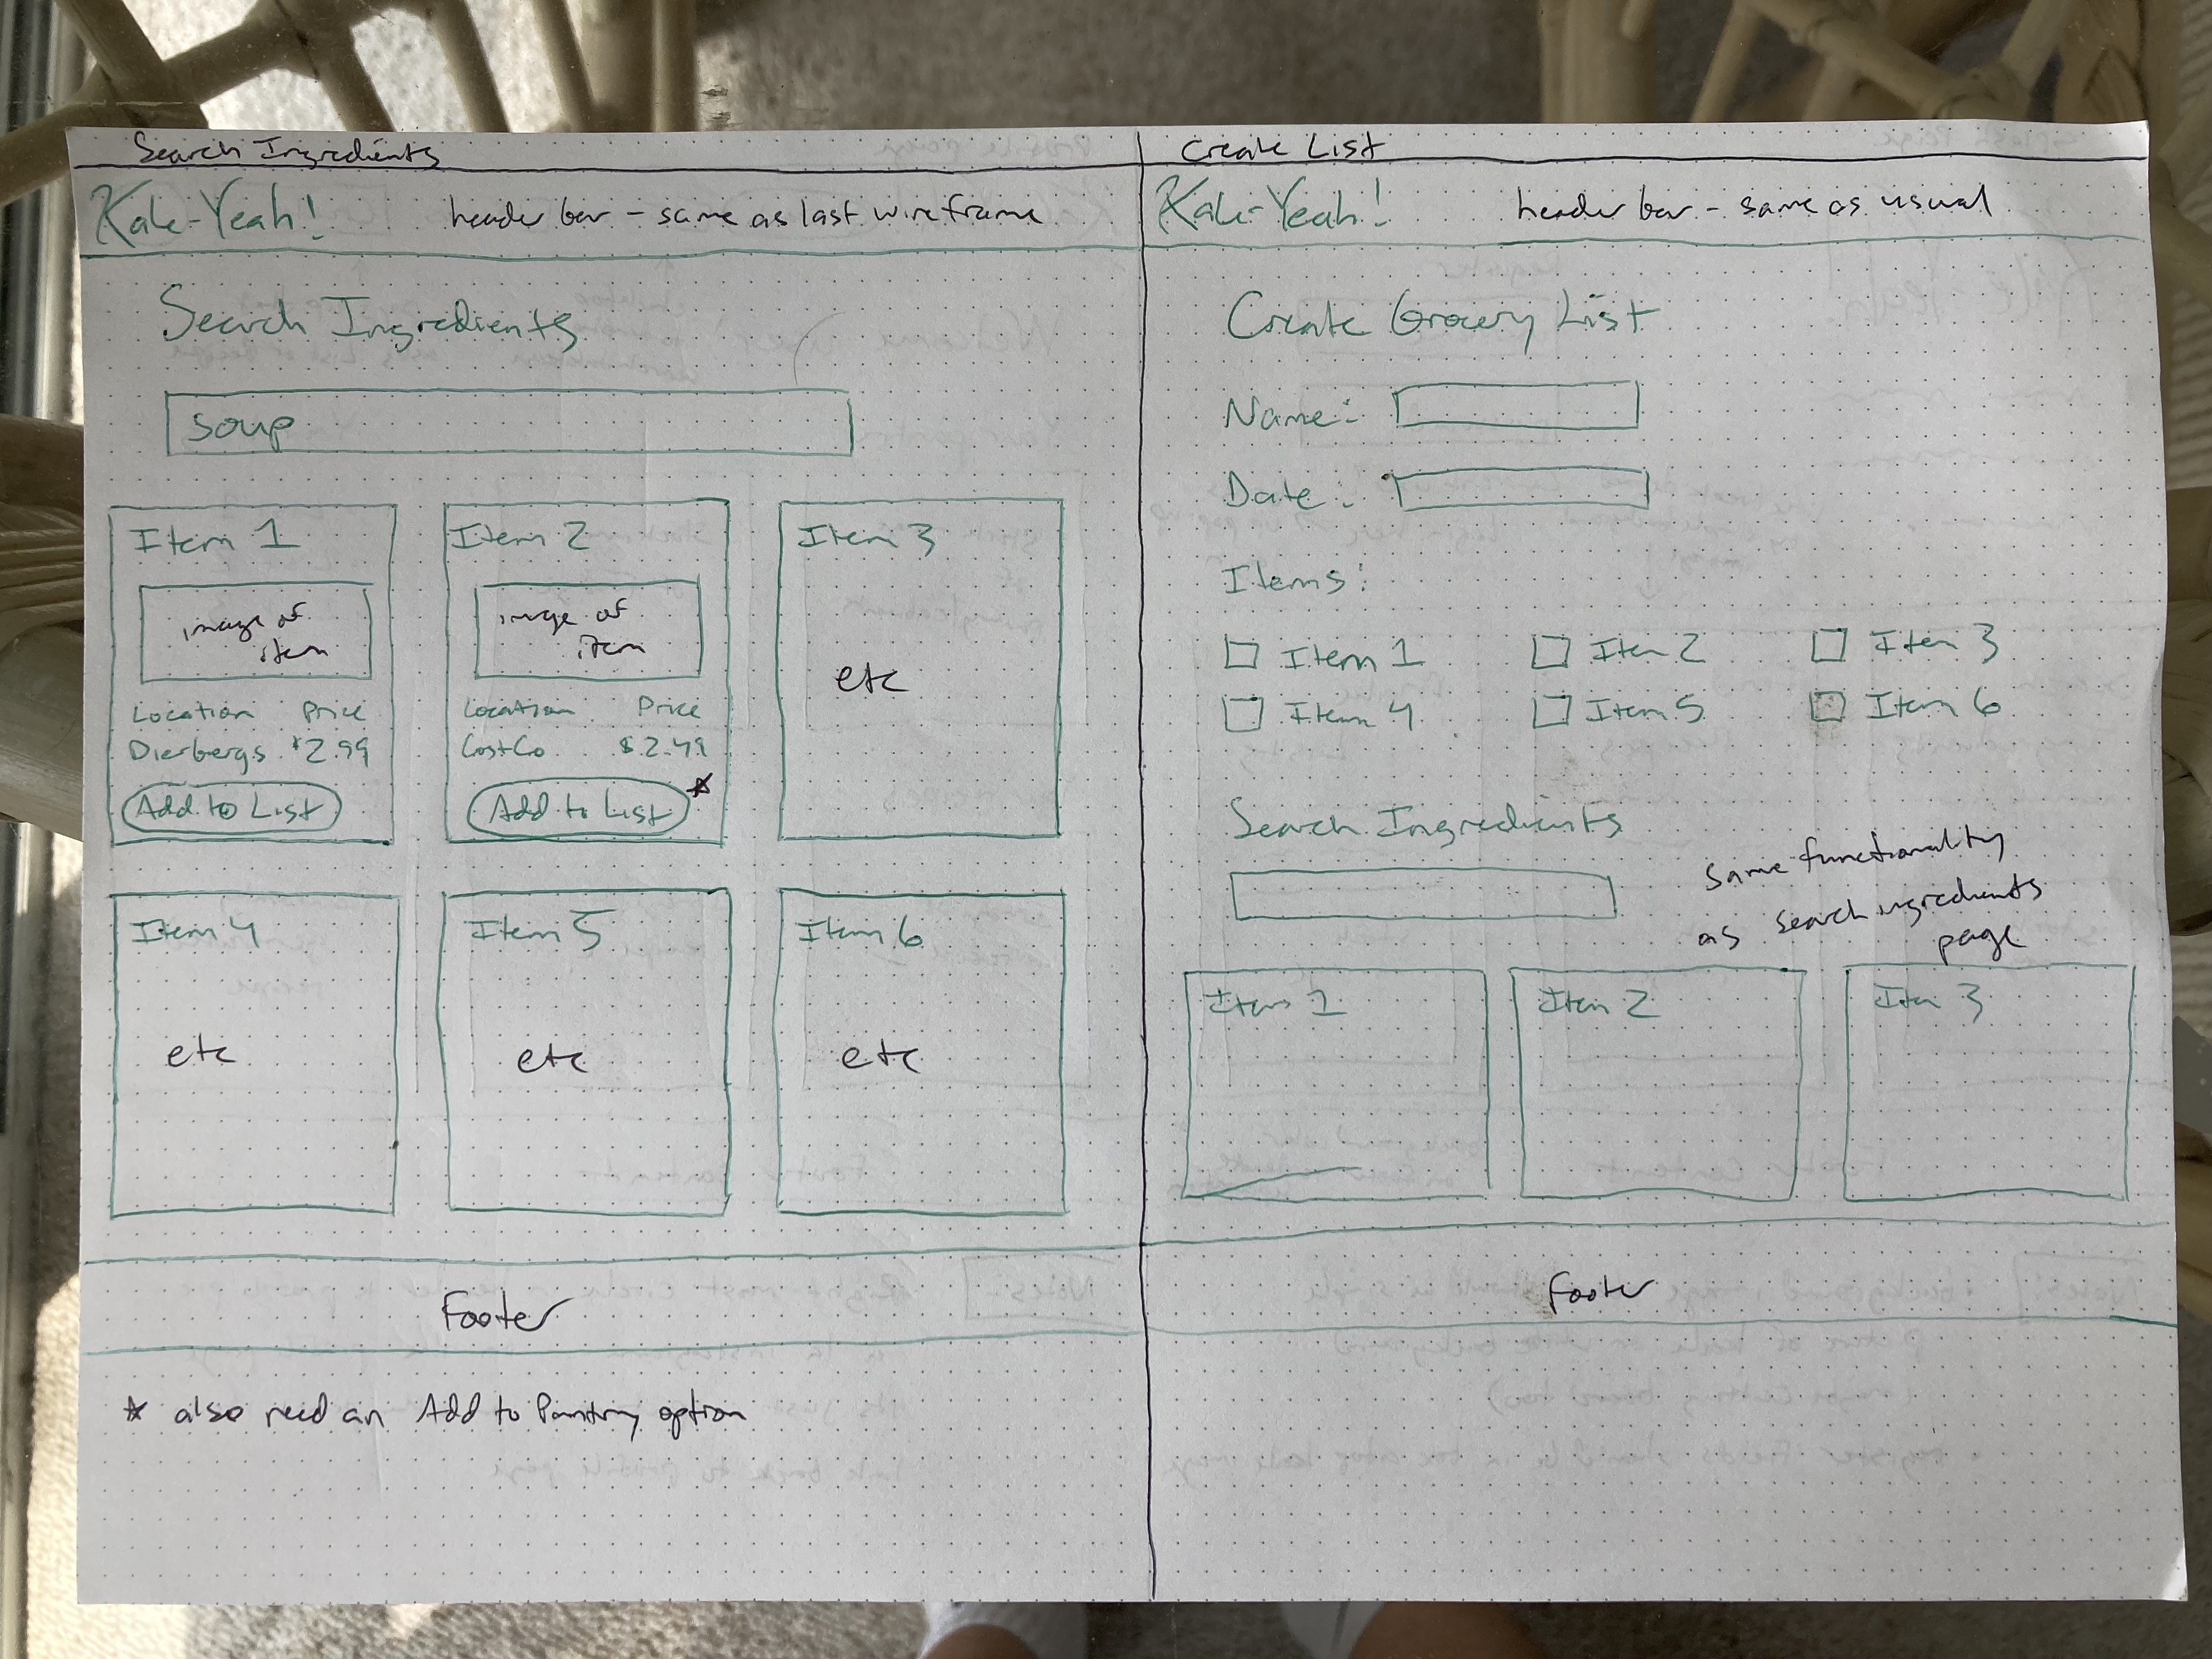 Search Ingredients
Kale-Yeah!
header bar - same as last wireframe
Search Ingredients
soup
Item 1
image of
item
Location Price
Dierbergs $2.99
Add to List
Item 2
image of
item
Location Price
CostCo $2.49
Add to List
Item 3
etc
Item 4
etc
Item 5
etc
Item 6
etc
Footer
* also need an Add to Pantry option
Create List
Kale-Yeah!
header bar - same as usual
Create Grocery List
Name:
Date:
Items:
Item 1 Item 2 Item 3
Item 4 Item 5 Item 6
Search Ingredients
same functionality
as search ingredients
page
Item 1
Item 2
Item 3
Footer